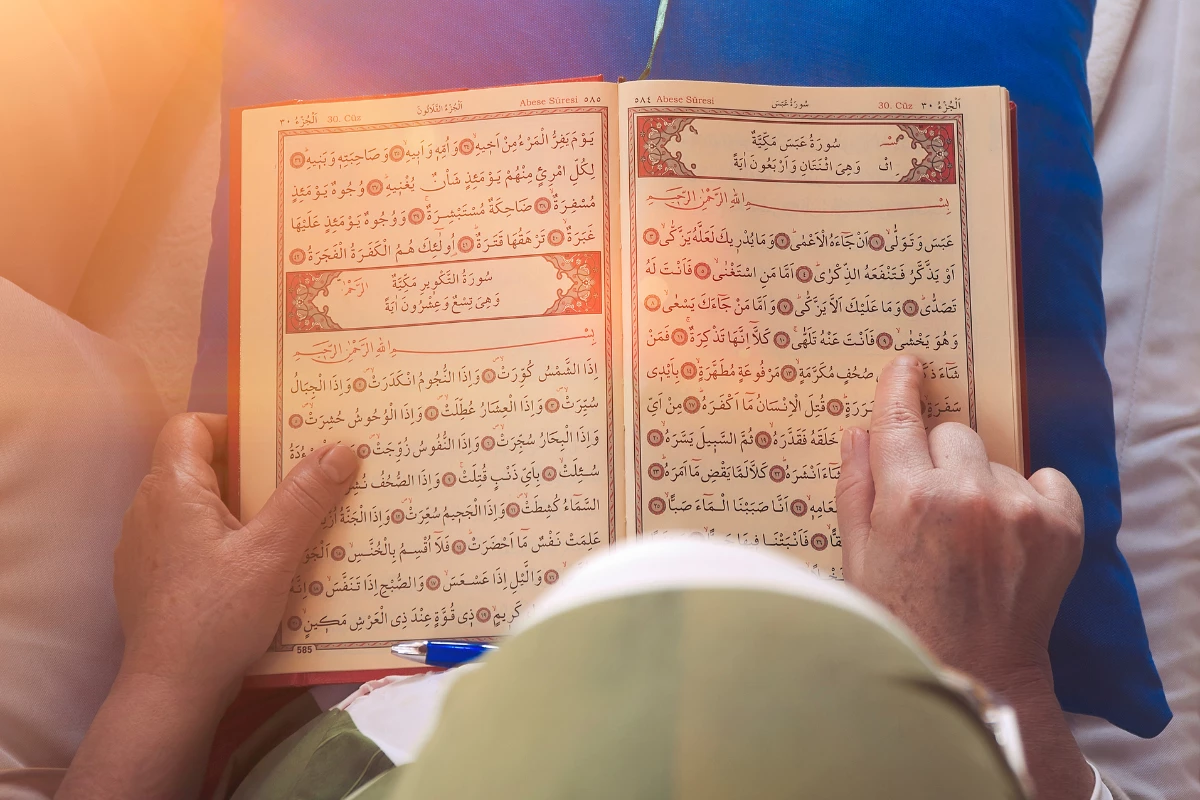 اَلْجُزْءُ ٣٠ 30. Cüz سُورَةُ عَبَسَ Abese Sûresi ٥٨٤
سُورَةُ عَبَسَ مَكِّيَّةٌ
وَهِىَ اثْنَتَانِ وَاَرْبَعُونَ اٰيَةً
بِسْمِ اللهِ الرَّحْمٰنِ الرَّحِيمِ
عَبَسَ وَتَوَلّٰىۙ ١ اَنْ جَٓاءَهُ الْاَعْمٰىۜ ٢ وَمَا يُدْرِيكَ لَعَلَّهُ يَزَّكّٰىۙ ٣
اَوْ يَذَّكَّرُ فَتَنْفَعَهُ الذِّكْرٰىۜ ٤ اَمَّا مَنِ اسْتَغْنٰىۙ ٥ فَاَنْتَ لَهُ
تَصَدّٰىۜ ٦ وَمَا عَلَيْكَ اَلَّا يَزَّكّٰىۜ ٧ وَاَمَّا مَنْ جَٓاءَكَ يَسْعٰىۙ ٨
وَهُوَ يَخْشٰىۙ ٩ فَاَنْتَ عَنْهُ تَلَهّٰىۚ ١٠ كَلَّٓا اِنَّهَا تَذْكِرَةٌۚ ١١ فَمَنْ
شَٓاءَ صُحُفٍ مُكَرَّمَةٍۙ ١٣ مَرْفُوعَةٍ مُطَهَّرَةٍۙ ١٤ بِاَيْدِى
سَفَرَةٍۙ ١٥ بَرَرَةٍۜ ١٦ قُتِلَ الْاِنْسَانُ مَٓا اَكْفَرَهُۜ ١٧ مِنْ اَىِّ
خَلَقَهُ فَقَدَّرَهُۙ ١٩ ثُمَّ السَّبِيلَ يَسَّرَهُۙ ٢٠
شَٓاءَ اَنْشَرَهُۜ ٢٢ كَلَّا لَمَّا يَقْضِ مَٓا اَمَرَهُۜ ٢٣
طَعَامِهِۙ ٢٤ اَنَّا صَبَبْنَا الْمَٓاءَ صَبًّاۙ ٢٥
فَاَنْبَتْنَا فِيهَا
٥٨٥ Abese Sûresi اَلْجُزْءُ الثَّلَاثُونَ 30. Cüz اَلْجُزْءُ ٣٠
يَوْمَ يَفِرُّ الْمَرْءُ مِنْ اَخِيهِۙ ٣٤ وَاُمِّهِ وَاَبِيهِۙ ٣٥ وَصَاحِبَتِهِ وَبَنِيهِۜ ٣٦
لِكُلِّ امْرِئٍ مِنْهُمْ يَوْمَئِذٍ شَأْنٌ يُغْنِيهِۜ ٣٧ وُجُوهٌ يَوْمَئِذٍ
مُسْفِرَةٌۙ ٣٨ ضَاحِكَةٌ مُسْتَبْشِرَةٌۚ ٣٩ وَوُجُوهٌ يَوْمَئِذٍ عَلَيْهَا
غَبَرَةٌۙ ٤٠ تَرْهَقُهَا قَتَرَةٌۜ ٤١ اُولٰٓئِكَ هُمُ الْكَفَرَةُ الْفَجَرَةُ ٤٢
سُورَةُ التَّكْوِيرِ مَكِّيَّةٌ
وَهِىَ تِسْعٌ وَعِشْرُونَ اٰيَةً
بِسْمِ اللهِ الرَّحْمٰنِ الرَّحِيمِ
اِذَا الشَّمْسُ كُوِّرَتْۙ ١ وَاِذَا النُّجُومُ انْكَدَرَتْۙ ٢ وَاِذَا الْجِبَالُ
سُيِّرَتْۙ ٣ وَاِذَا الْعِشَارُ عُطِّلَتْۙ ٤ وَاِذَا الْوُحُوشُ حُشِرَتْۙ ٥
وَاِذَا الْبِحَارُ سُجِّرَتْۙ ٦ وَاِذَا النُّفُوسُ زُوِّجَتْۙ ٧
سُئِلَتْۙ ٨ بِاَىِّ ذَنْبٍ قُتِلَتْۚ ٩ وَاِذَا الصُّحُفُ
السَّمَٓاءُ كُشِطَتْۙ ١١ وَاِذَا الْجَحِيمُ سُعِّرَتْۙ ١٢ وَاِذَا الْجَنَّةُ
عَلِمَتْ نَفْسٌ مَٓا اَحْضَرَتْۜ ١٤ فَلَٓا اُقْسِمُ بِالْخُنَّسِۙ ١٥
وَالَّيْلِ اِذَا عَسْعَسَۙ ١٧ وَالصُّبْحِ اِذَا تَنَفَّسَۙ ١٨ اِنَّهُ
كَرِيمٍۙ ١٩ ذِى قُوَّةٍ عِنْدَ ذِى الْعَرْشِ مَكِينٍۙ ٢٠
585